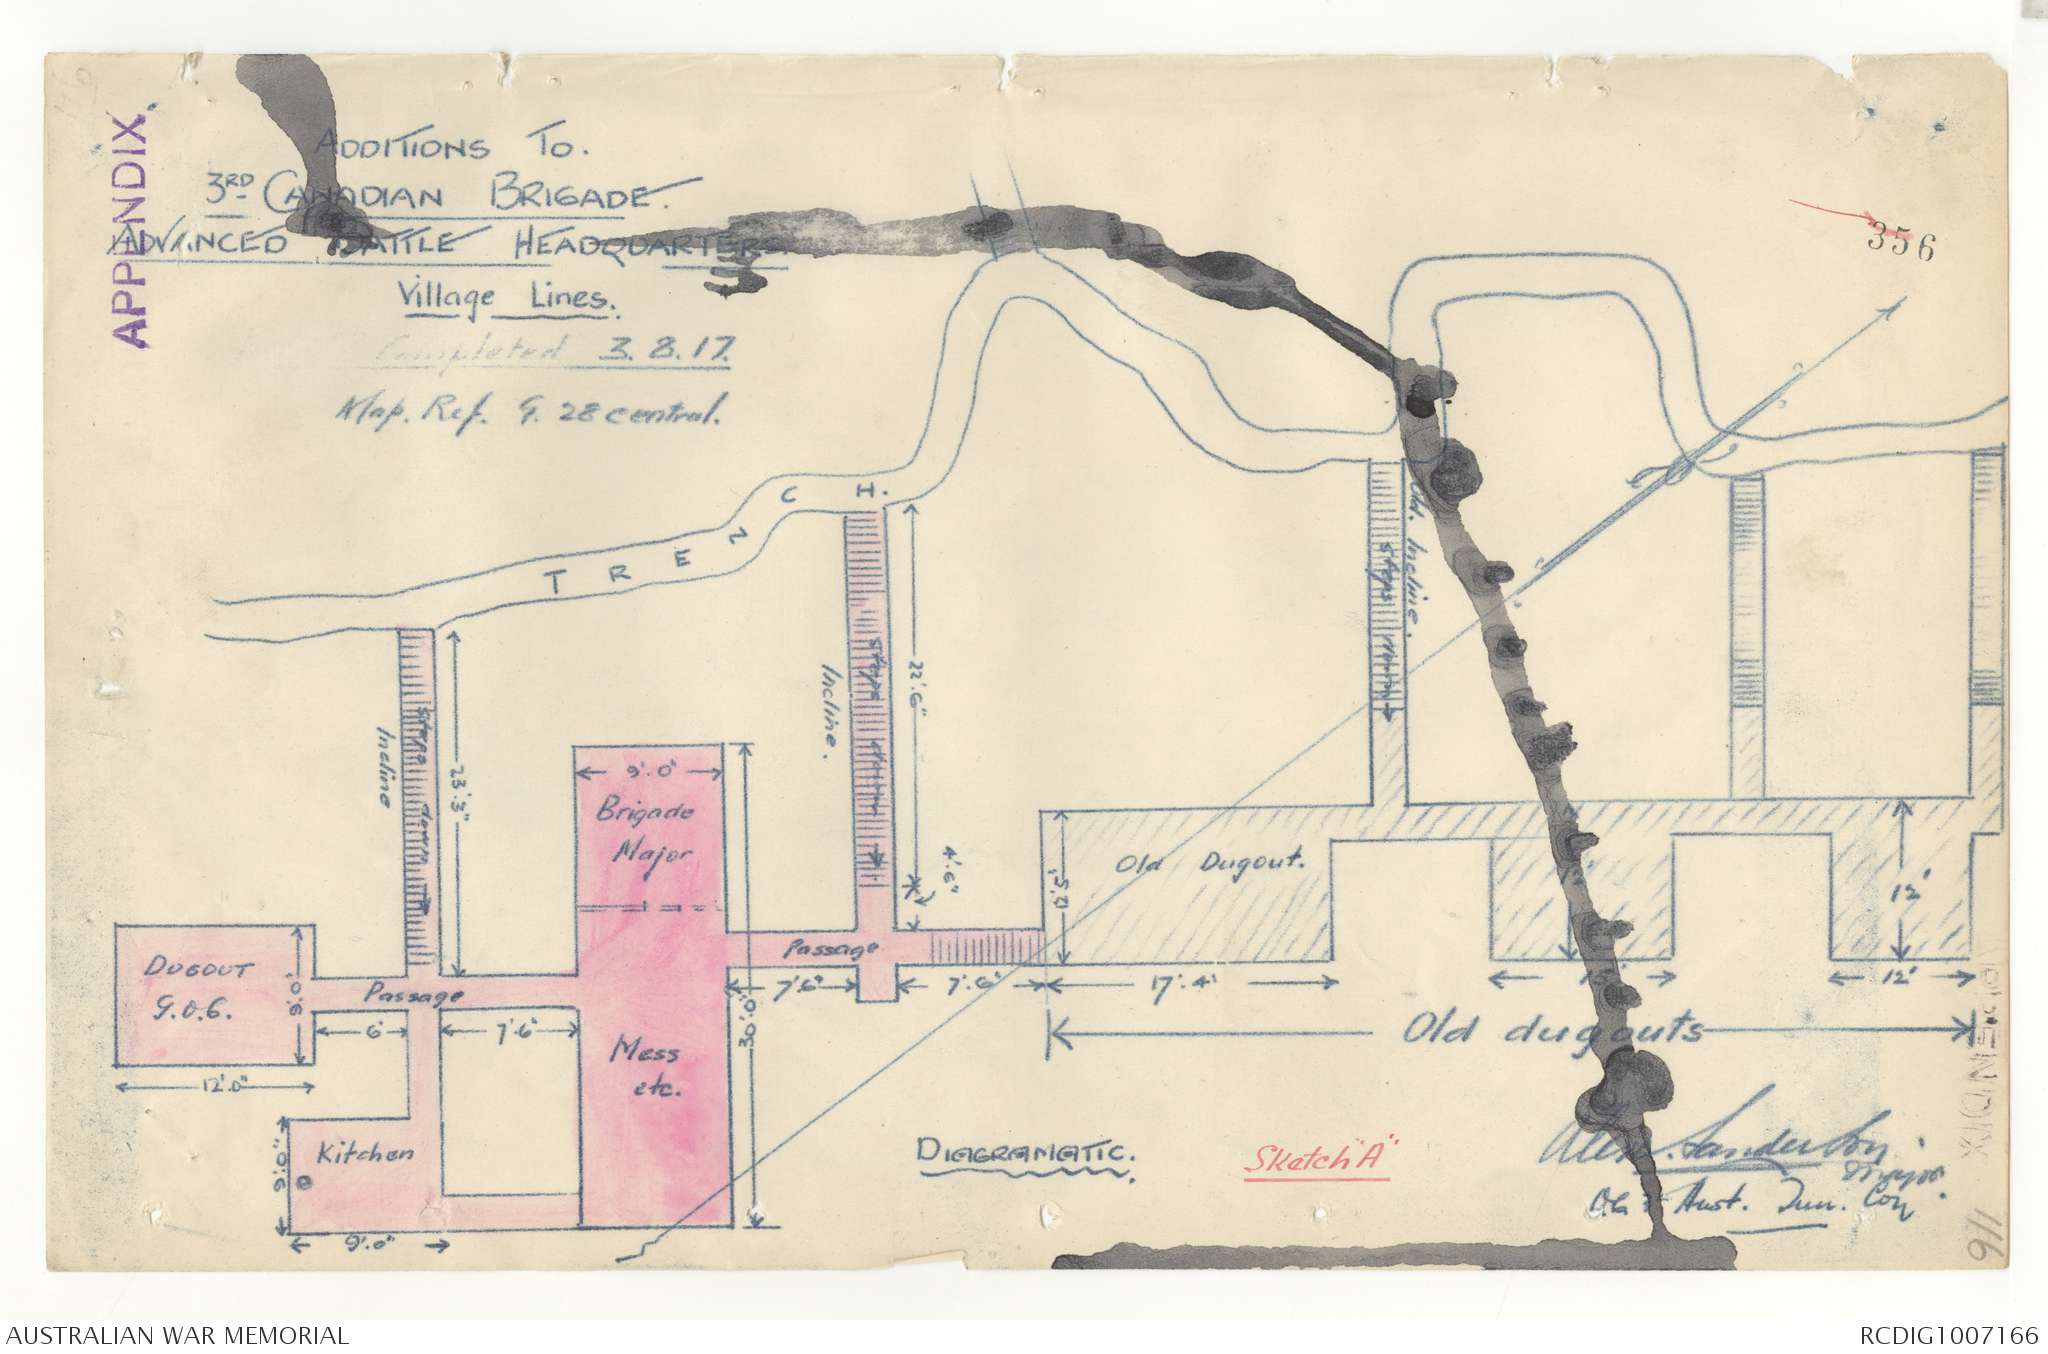 APPENDIX.
ADDITIONS TO.
3RD CANADIAN BRIGADE.
ADVANCED BATTLE HEADQUARTERS.
Village Lines.
Completed 3.8.17.
Map. Ref. G. 28 central.
356
TRENCH.
Incline
Steps down
23'.3"
Incline.
Steps down
22'.6"
4'.6"
Old. Incline.
Steps down
9'.0"
Brigade
Major
Old Dugout.
15'.0"
12'
12'
DUGOUT
G.O.C.
9'.0"
12'.0"
Passage
6'
7'.6"
Passage
7'6"
7'.6"
17'.4'
15'
12'
30'.0"
Mess
etc.
Old dugouts
Kitchen
9'.0"
9'.0"
DIAGRAMATIC.
Sketch "A"
Alex. Sanderson.
Major.
O.C. 3 Aust. Tun. Coy
APPENDIX
116
AUSTRALIAN WAR MEMORIAL
RCDIG1007166